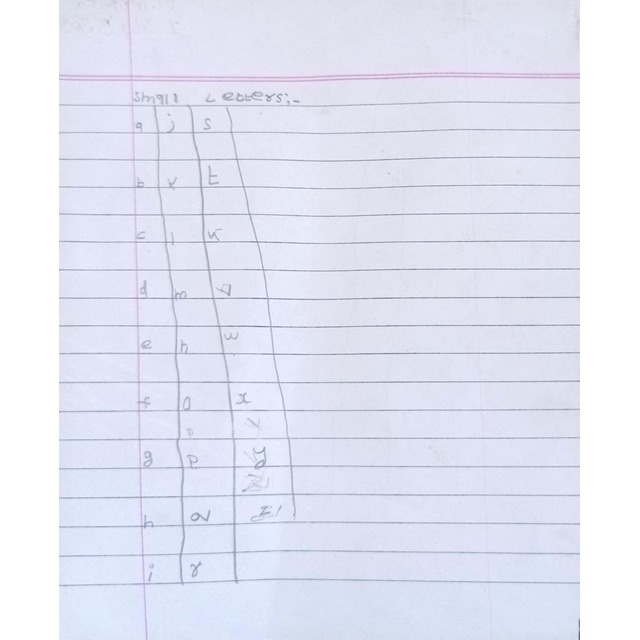 Small Letters:-
a j s
b k t
c l u
d m v
e n w
f o x
g p y
h q z
i r